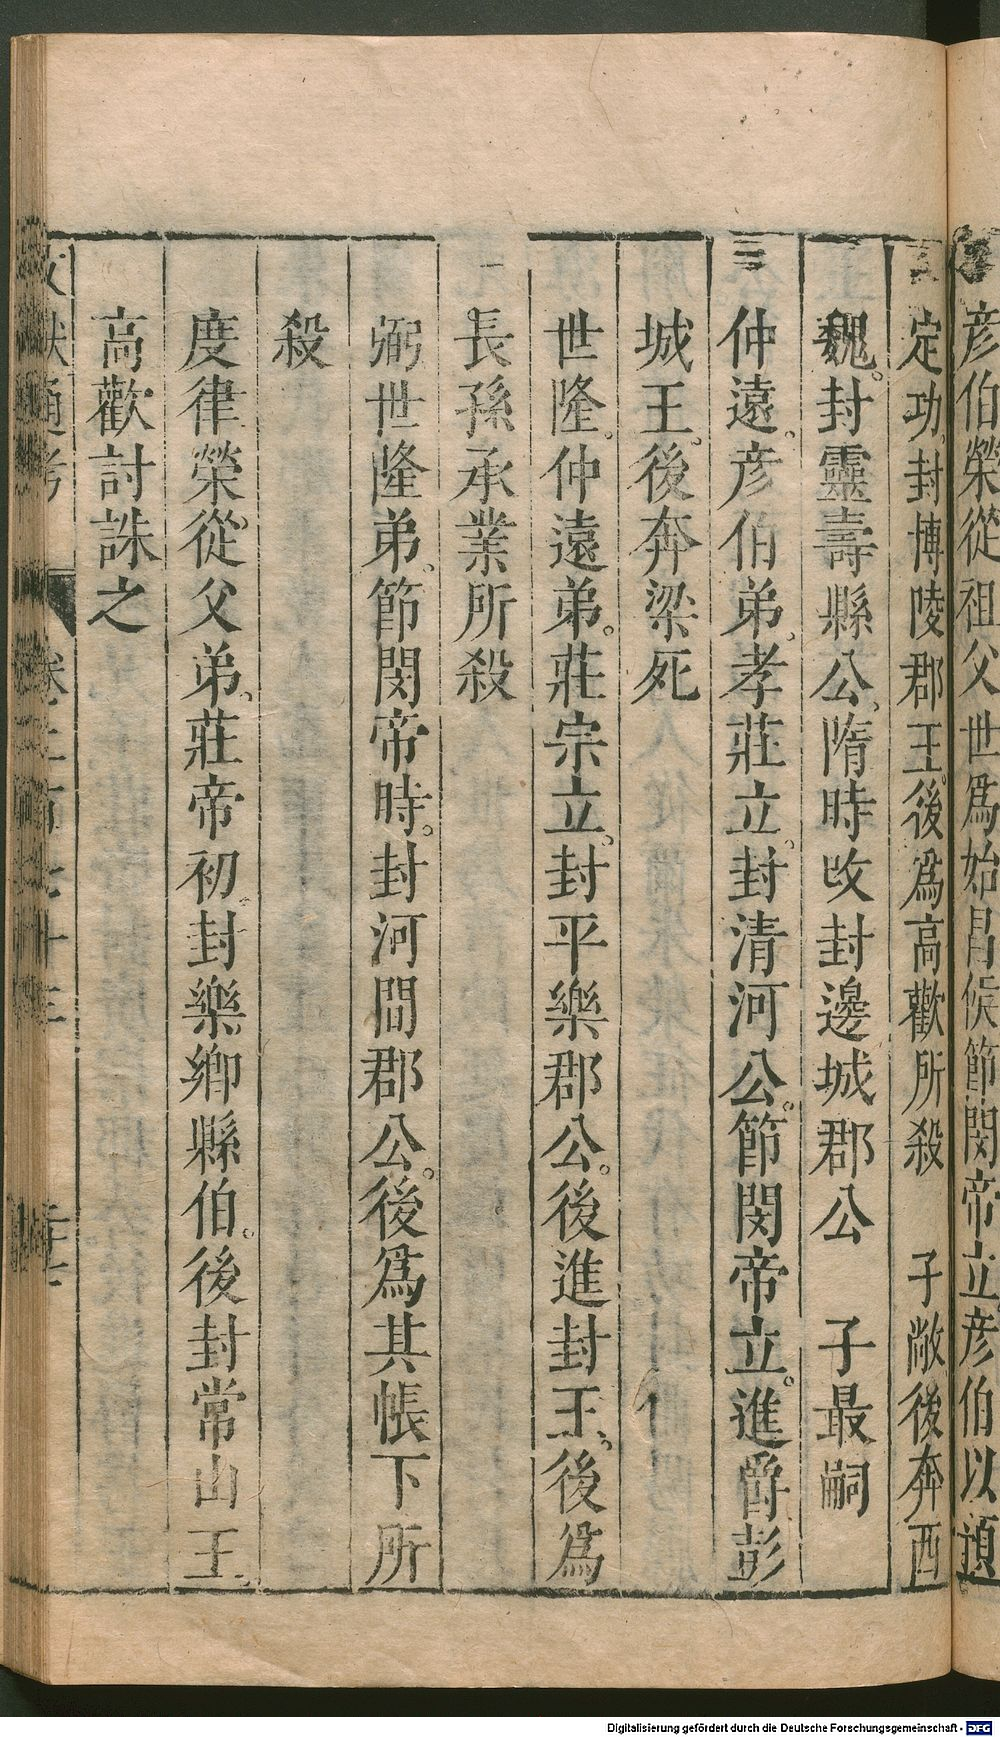 彥伯榮從祖父世爲始昌侯節閔帝立彥伯以預
定功封博陵郡王後爲高歡所殺　子敞後奔西
魏。封靈壽縣公。隋時改封邊城郡公　子最嗣
仲遠。彥伯弟。孝莊立。封清河公。節閔帝立。進爵彭
城王。後奔梁死
世隆。仲遠弟。莊宗立。封平樂郡公。後進封王。後爲
長孫承業所殺
弼世隆弟。節閔帝時。封河間郡公。後爲其帳下所
殺
度律榮從父弟。莊帝初。封樂鄉縣伯。後封常山王。
高歡討誅之
文獻通考　卷之二百七十三
Digitalisierung gefördert durch die Deutsche Forschungsgemeinschaft - DFG